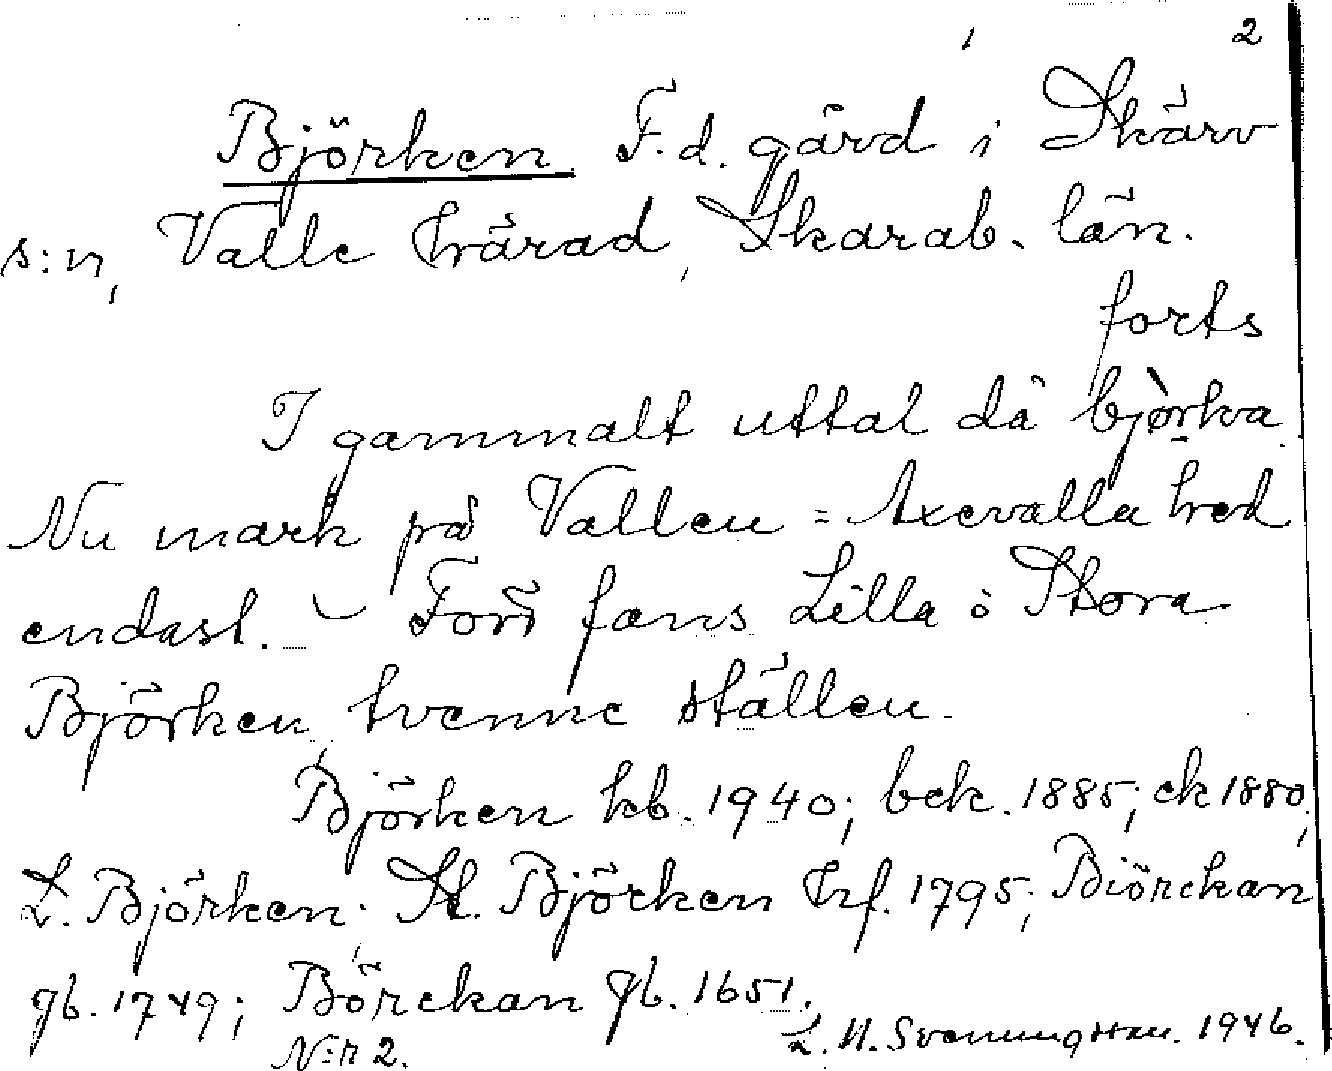 2
Björken F.d. gård i Skärv
s:n, Valle härad, Skarab. län.
forts
I gammalt uttal då björka
Nu mark på Vallen = Axevalla hed
endast. – Förr fans Lilla o Stora
Björken, tvenne ställen.
Björken kb. 1940; bek. 1885; ek 1880,
L. Björken; St. Björken hrf. 1795; Biörckan
gb. 1749; Börckan gb. 1651.
N:r 2. L. M. Svenungsson. 1946.